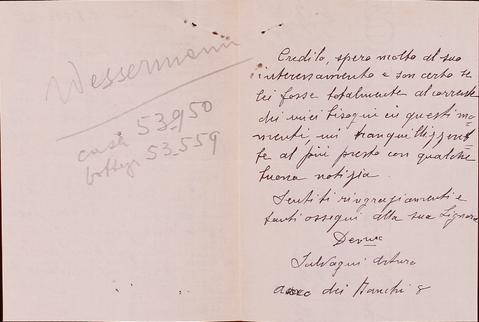 Wessermann
casa 53950
bottega 53.559
Credilo, spero molto del suo
interessamento e son certo se
lei fosse totalmente al corrente
dei miei bisogni in questi mo=
menti, mi tranquillizzereb=
be al più presto con qualche
buona notizia.
Sentiti ringraziamenti e
tanti ossequi alla sua Signora
Devmo
Salvagni Arturo
dei Banchi 8